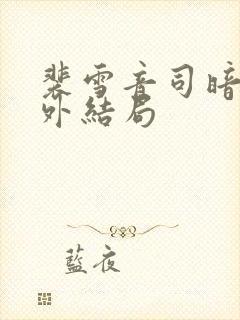 裴雪音司暗
外結局
藍夜